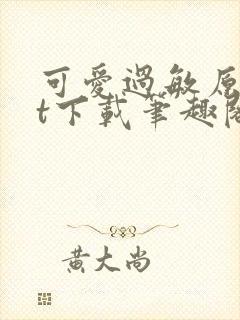 可愛過敏原
t下載筆趣閣
黃大尚